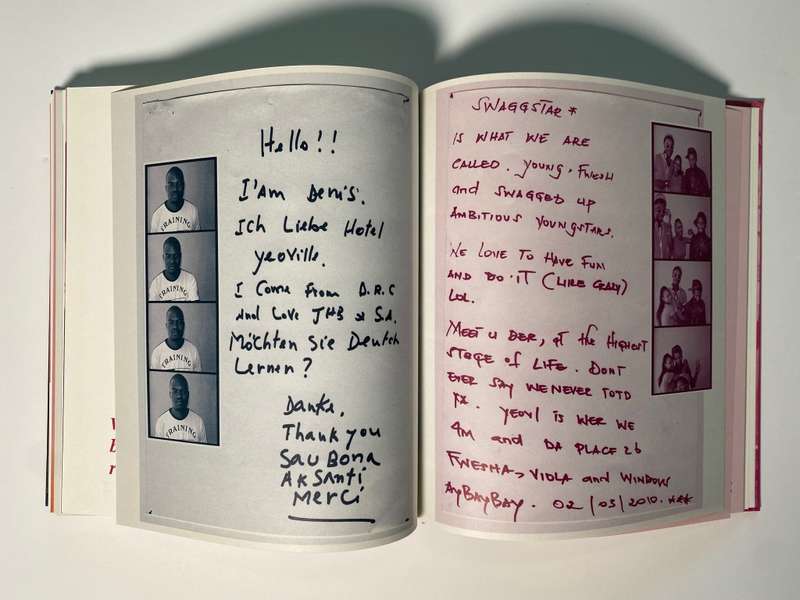 Hello!!
I'Am Denis.
Ich Liebe Hotel
yeoville.
I Come from D.R.C
And Love JHB & S.A.
Möchten Sie Deutch
Lernen?
Danke,
Thank you
Sau Bona
Ak Santi
Merci
TRAINING
TRAINING
TRAINING
TRAINING
SWAGGSTAR *
IS WHAT WE ARE
CALLED. YOUNG, FWESH
and SWAGGED UP
AMBITIOUS YOUNGSTARS.
WE LOVE TO HAVE FUN
AND DO IT (LIKE CRAZY)
LOL.
MEET U DER, at the HIGHEST
STAGE OF LIFE. DONT
EVER SAY WE NEVER TOTD
YA. YEOVI IS WER WE
4M and DA PLACE 2b
FWESHA, VIOLA and WINDOW
AyBayBay. 02/05/2010. ***